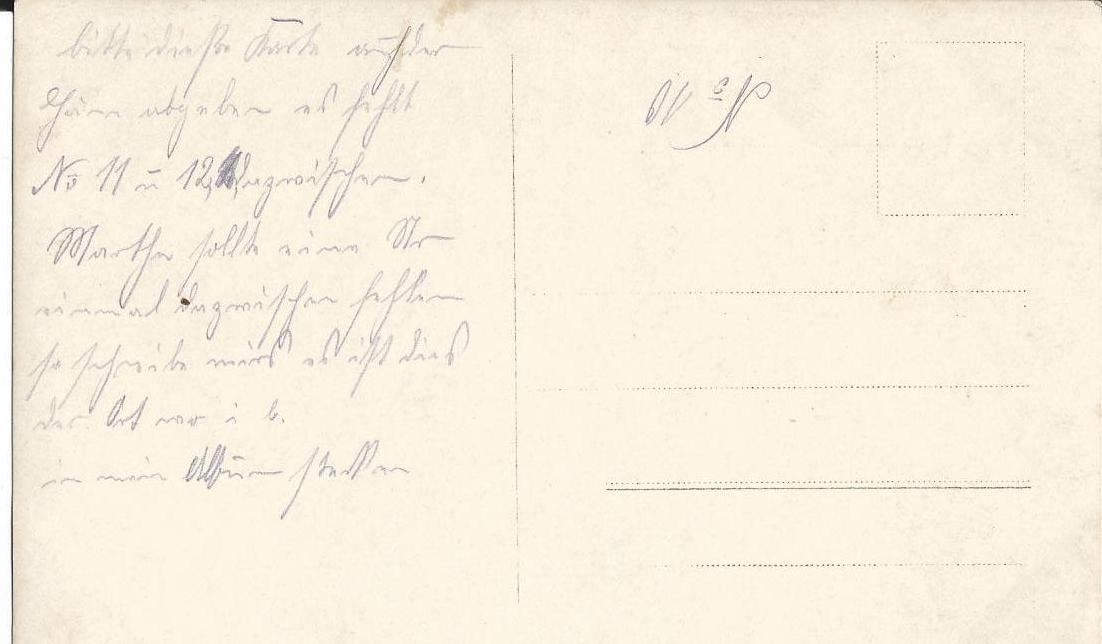 bitte diese Karte auf der
abgeben es fehlt
No 11 u 12, dazwischen.
Martha sollte eine Nr
einmal dazwischen fehlen
so schreibe mirs es ist dies
der Ort wo i b.
in mein Album stecken
No 10